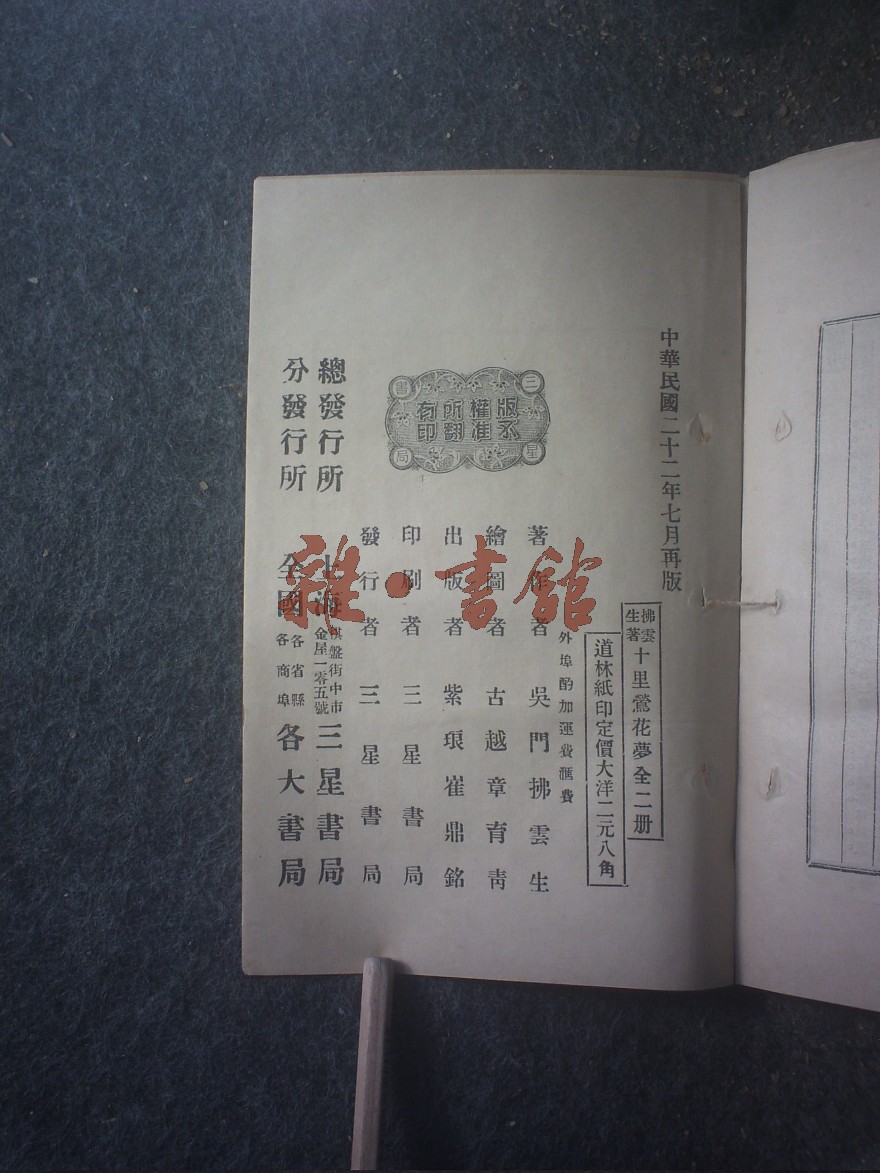 中華民國二十二年七月再版
拂雲生著 十里鶯花夢全二册
道林紙印定價大洋二元八角
外埠酌加運費滙費
著作者 吳門拂雲生
繪圖者 古越章育靑
出版者 紫琅崔鼎銘
印刷者 三星書局
發行者 三星書局
三星書局
版權所有
不准翻印
總發行所 上海 棋盤街中市金屋一零五號 三星書局
分發行所 全國 各省縣各商埠 各大書局
雜·書館